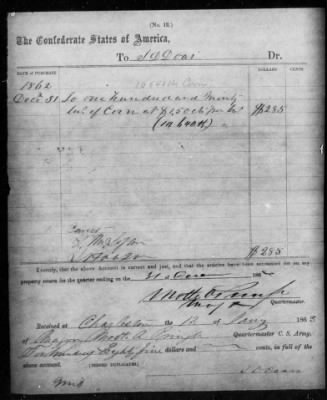 (No. 12.)
The Confederate States of America,
To Dr.
DATE OF PURCHASE DOLLARS CENTS
1862
Dec 31 To one hundred and ninety
bu of Corn at $1,50cts per bu $285
$285
I certify, that the above Account is correct and just, and that the articles have been accounted for on my
property return for the quarter ending on the 31st Dec 186
Quartermaster.
Received at Charleston the 12 of Jany 1863
of Major Motte A Pringle Quartermaster C. S. Army,
Two hundred Eighty five dollars and cents, in full of the
above account. (SIGNED DUPLICATES.)